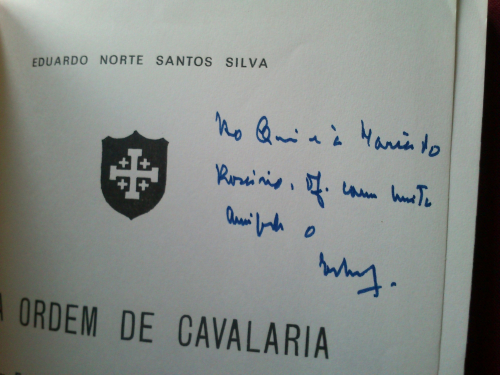 EDUARDO NORTE SANTOS SILVA
Ao Quim e à Maria do
Rosário, Of. com muita
amizade o
A ORDEM DE CAVALARIA